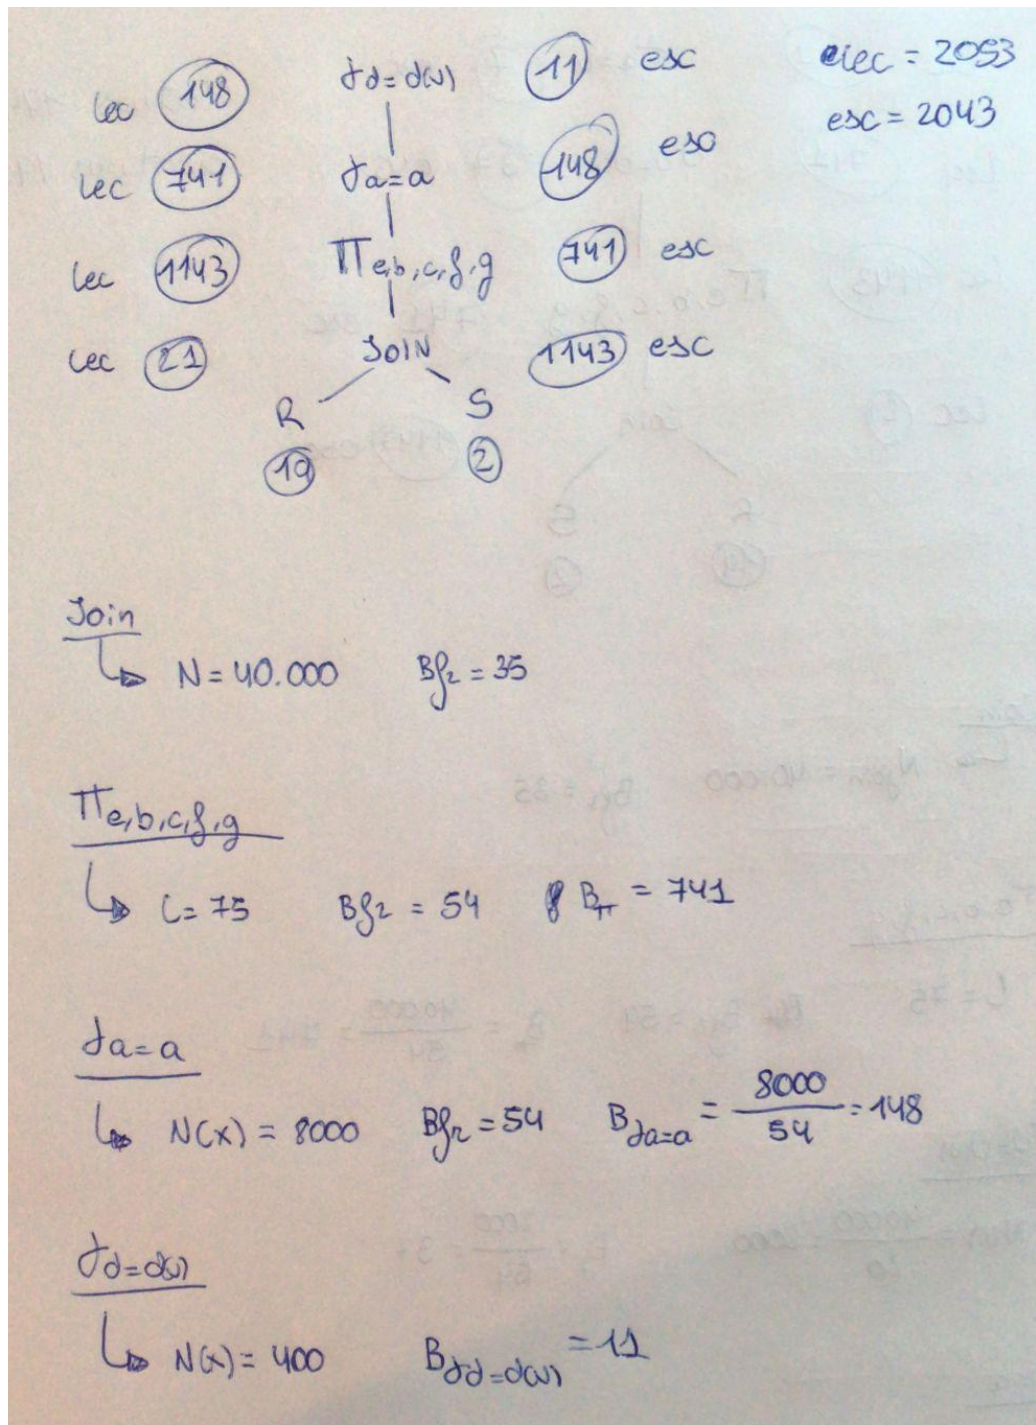 lec 148 σd=d(v) 11 esc lec = 2053
esc = 2043
lec 741 σa=a 148 esc
lec 1143 Πe,b,c,f,g 741 esc
lec 21 JOIN 1143 esc
R S
19 2
Join
↳ N=40.000 Bfr = 35
Πe,b,c,f,g
↳ L=75 Bfr = 54 Bπ = 741
σa=a
↳ N(x) = 8000 Bfr = 54 Bσa=a = 8000/54 = 148
σd=d(v)
↳ N(x) = 400 Bσd=d(v) = 11